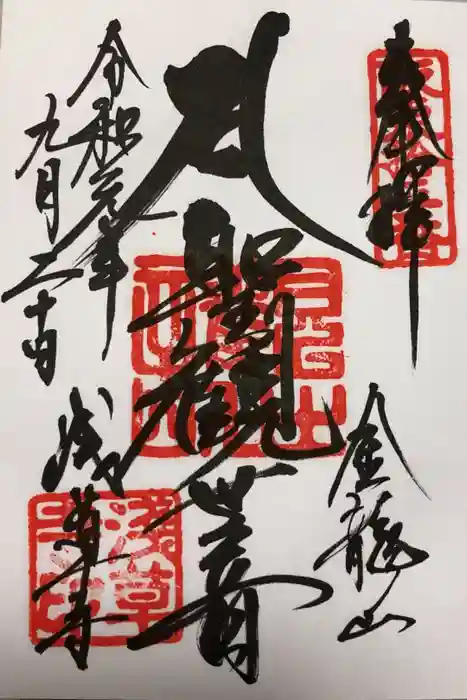 奉拝
金龍山
聖観世音
令和元年
九月二十日
浅草寺
浅草